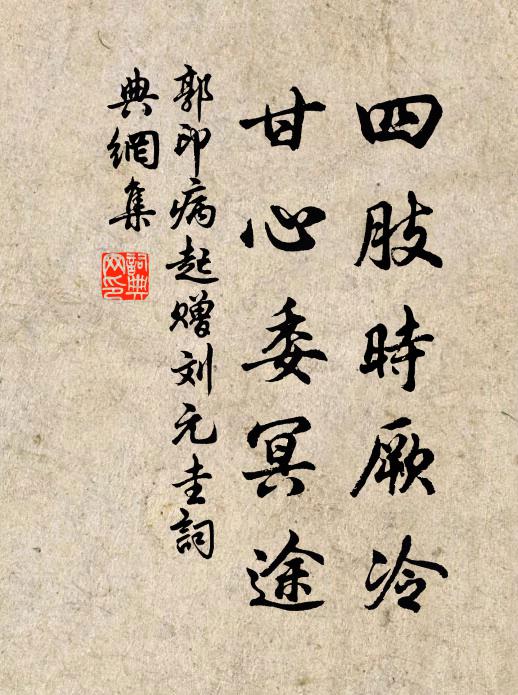 四肢時厥冷
甘心委冥途
郭印病起赠刘元圭詞
典網集
詞典网印